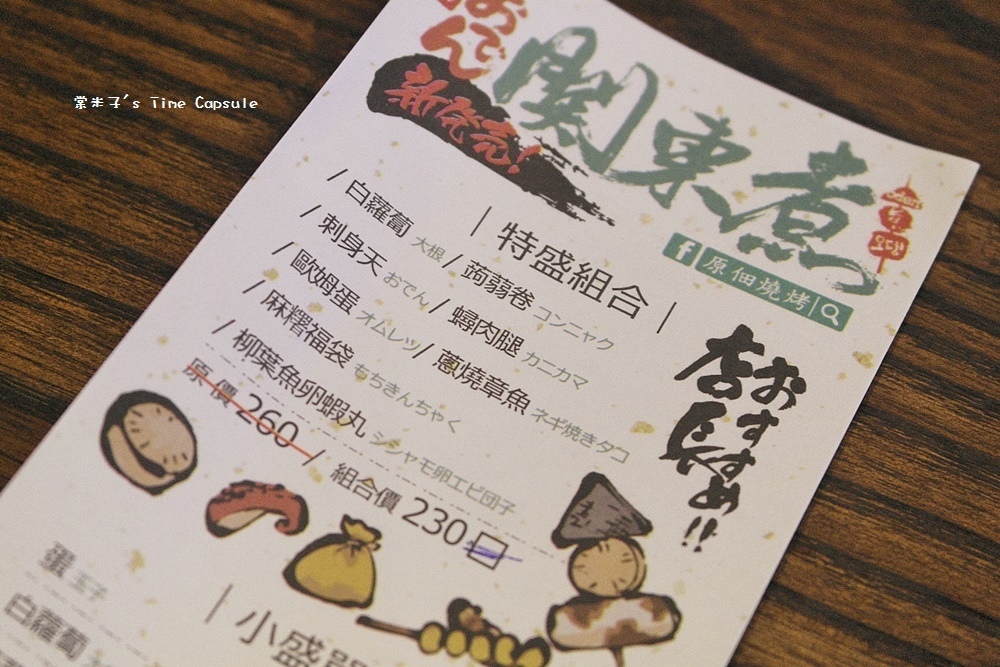 棠米子's Time Capsule
おでん
新発売!
関東煮
Oden
f 原佃燒烤
特盛組合
/ 白蘿蔔 大根 / 蒟蒻卷 コンニャク
/ 刺身天 おでん / 蟳肉腿 カニカマ
/ 歐姆蛋 オムレツ / 蔥燒章魚 ネギ焼きタコ
/ 麻糬福袋 もちきんちゃく
/ 柳葉魚卵蝦丸 シシャモ卵エビ団子
原價 260 / 組合價 230
店長
おすすめ!!
蛋 玉子
白蘿蔔
小盛